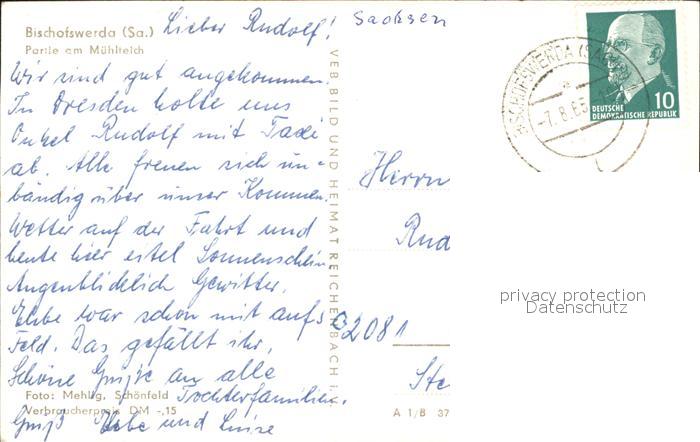 Bischofswerda (Sa.)
Partie am Mühlteich
Lieber Rudolf!
Sachsen
Wir sind gut angekommen.
In Dresden holte uns
Onkel Rudolf mit Taxi
ab. Alle freuen sich un-
bändig über unser Kommen.
Wetter auf der Fahrt und
heute hier eitel Sonnenschein
Augenblicklich Gewitter.
war schon mit aufs
Feld. Das gefällt ihr.
Schöne Grüße an alle
Tochterfamilien.
Gruß und Luise
Foto: Mehlig, Schönfeld
Verbraucherpreis DM -,15
VEB. BILD UND HEIMAT REICHENBACH i.
A 1/B 37
BISCHOFSWERDA (SA
-7.8.65
10
DEUTSCHE
DEMOKRATISCHE REPUBLIK
Herrn
Rud
2081
Ste
privacy protection
Datenschutz